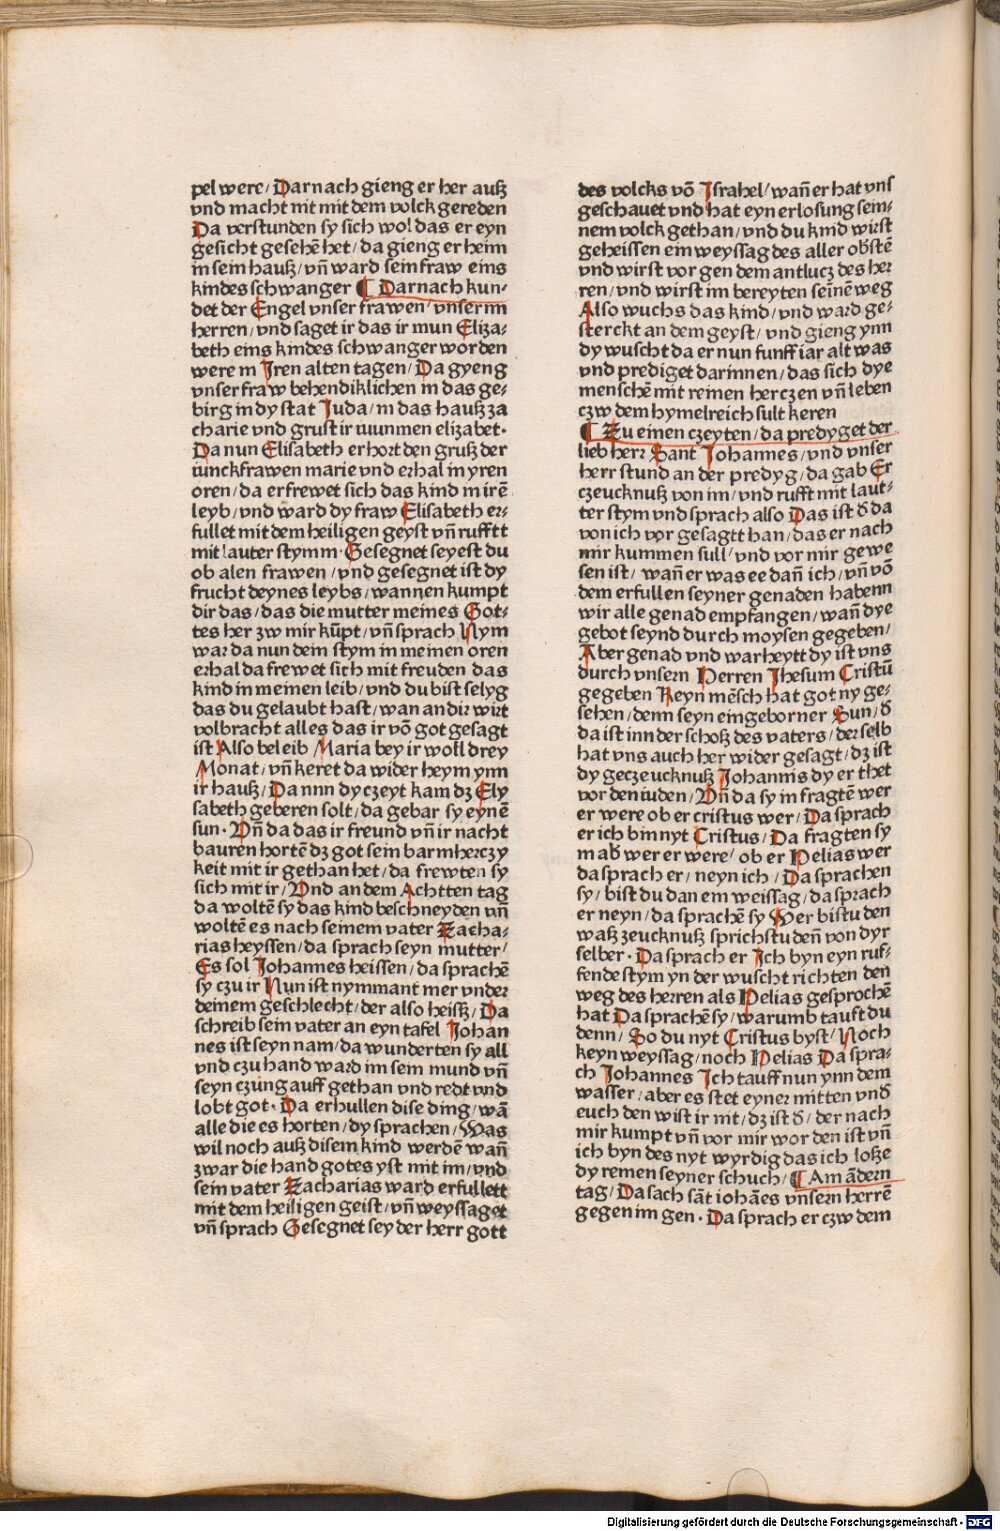 pel were/ Darnach gieng er her auß
vnd macht nit mit dem volck gereden
Da verstunden sy sich wol das er eyn
gesicht gesehē het/ da gieng er heim
in sein hauß/ vn̄ ward sein fraw eins
kindes schwanger ¶ Darnach kun⸗
det der Engel vnser frawen/ vnser nn
herren/ vnd saget ir das ir mun Eliza⸗
beth eins kindes schwanger worden
were in Jren alten tagen/ Da gyeng
vnser fraw behendiklichen in das ge⸗
birg in dy stat Juda/ in das hauß za
charie vnd grust ir muumen elizabet·
Da nun Elisabeth erhort den gruß der
iunckfrawen marie vnd erhal in yren
oren/ da erfrewet sich das kind in irē
leyb/ vnd ward dy fraw Elisabeth er⸗
fullet mit dem heiligen geyst vn̄ rufftt
mit lauter stymm· Gesegnet seyest du
ob alen frawen/ vnd gesegnet ist dy
frucht deynes leybs/ wannen kumpt
dir das/ das die mutter meines Got⸗
tes her zw mir kūpt/ vn̄ sprach Nym
war da nun dein stym in meinen oren
erhal da frewet sich mit freuden das
kind in meinen leib/ vnd du bist selyg
das du gelaubt hast/ wan an dir wirt
volbracht alles das ir vō got gesagt
ist Also beleib Maria bey ir woll drey
Monat/ vn̄ keret da wider heym ynn
ir hauß/ Da nnn dy czeyt kam dz Ely
sabeth geberen solt/ da gebar sy eynē
sun· Vn̄ da das ir freund vn̄ ir nacht
bauren hortē dz got sein barmherczy
keit mit ir gethan het/ da frewten sy
sich mit ir/ Vnd an dem Achtten tag
da woltē sy das kind beschneyden vn̄
woltē es nach seinem vater Zacha⸗
rias heyssen/ da sprach seyn mutter/
Es sol Johannes heissen/ da sprachē
sy czu ir Nun ist nymmant mer vnder
deinem geschlecht/ der also heisß/ Da
schreib sein vater an eyn tafel Johan
nes ist seyn nam/ da wunderten sy all
vnd czu hand ward im sein mund vn̄
seyn czüng auff gethan vnd redt vnd
lobt got· Da erhullen dise ding/ wā
alle die es horten/ dy sprachen/ Was
wil noch auß disem kind werdē wan̄
zwar die hand gotes yst mit im/ vnd
sein vater Zacharias ward erfullett
mit dem heiligen geist/ vn̄ weyssaget
vn̄ sprach Gesegnet sey der herr gott
des volcks vō Jsrahel/ wan̄ er hat vns
geschauet vnd hat eyn erlosung sein⸗
nem volck gethan/ vnd du kind wirst
geheissen ein weyssag des aller obstē
vnd wirst vor gen dem antlucz des her
ren/ vnd wirst im bereyten seinē weg
Also wuchs das kind/ vnd ward ge⸗
sterckt an dem geyst/ vnd gieng ynn
dy wuscht da er nun funff iar alt was
vnd prediget darinnen/ das sich dye
menschē mit reinen herczen vn̄ leben
czw dem hymelreich sult keren
¶ Zu einen czeyten/ da predyget der
lieb herr Sant Johannes/ vnd vnser
herr stund an der predyg/ da gab Er
czeucknuß von im/ vnd rufft mit laut⸗
ter stym vnd sprach also Das ist ď da
von ich vor gesagtt han/ das er nach
mir kummen sull/ vnd vor mir gewe
sen ist/ wan̄ er was ee dan̄ ich/ vn̄ vō
dem erfullen seyner genaden habenn
wir alle genad empfangen/ wan̄ dye
gebot seynd durch moysen gegeben/
Aber genad vnd warheytt dy ist vns
durch vnsern Herren Jhesum Cristū
gegeben Keyn mēsch hat got ny ge⸗
sehen/ denn seyn eingeborner Sun/ ď
da ist inn der schoß des vaters/ der selb
hat vns auch her wider gesagt/ dz ist
dy geczeucknuß Johannis dy er thet
vor den iuden/ Vn̄ da sy in fragtē wer
er were ob er cristus wer/ Da sprach
er ich bin nyt Cristus/ Da fragten sy
in ab̄ wer er were/ ob er Helias wer
da sprach er/ neyn ich/ Da sprachen
sy/ bist du dan ein weissag/ da sprach
er neyn/ da sprachē sy Wer bistu den
waß zeucknuß sprichstu den̄ von dyr
selber· Da sprach er Ich byn eyn ruf⸗
fende stym yn der wuscht richten den
weg des herren als Helias gesprochē
hat Da sprachē sy/ warumb tauft du
denn/ So du nyt Cristus byst/ Noch
keyn weyssag/ noch Helias Da spra⸗
ch Johannes Ich tauff nun ynn dem
wasser/ aber es stet eyner mitten vnď
euch den wist ir nit/ dz ist ď/ der nach
mir kumpt vn̄ vor mir wor den ist vn̄
ich byn des nyt wyrdig das ich loße
dy remen seyner schuch/ ¶ Am ādern
tag/ Da sach sāt iohāes vnsern herrē
gegen im gen· Da sprach er czw dem
Digitalisierung gefördert durch die Deutsche Forschungsgemeinschaft - DFG